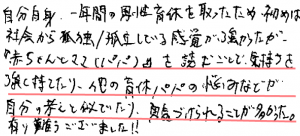 自分自身、一年間の男性育休を取ったため、初めは
社会から孤独/孤立している感覚が強かったが、
『赤ちゃんとママ(パパ)』を読むことで、気持ちを
強く持てたり、他の育休パパの悩みなどが
自分の考えと似ていたり、勇気づけられることが多かった。
有り難うございました!!